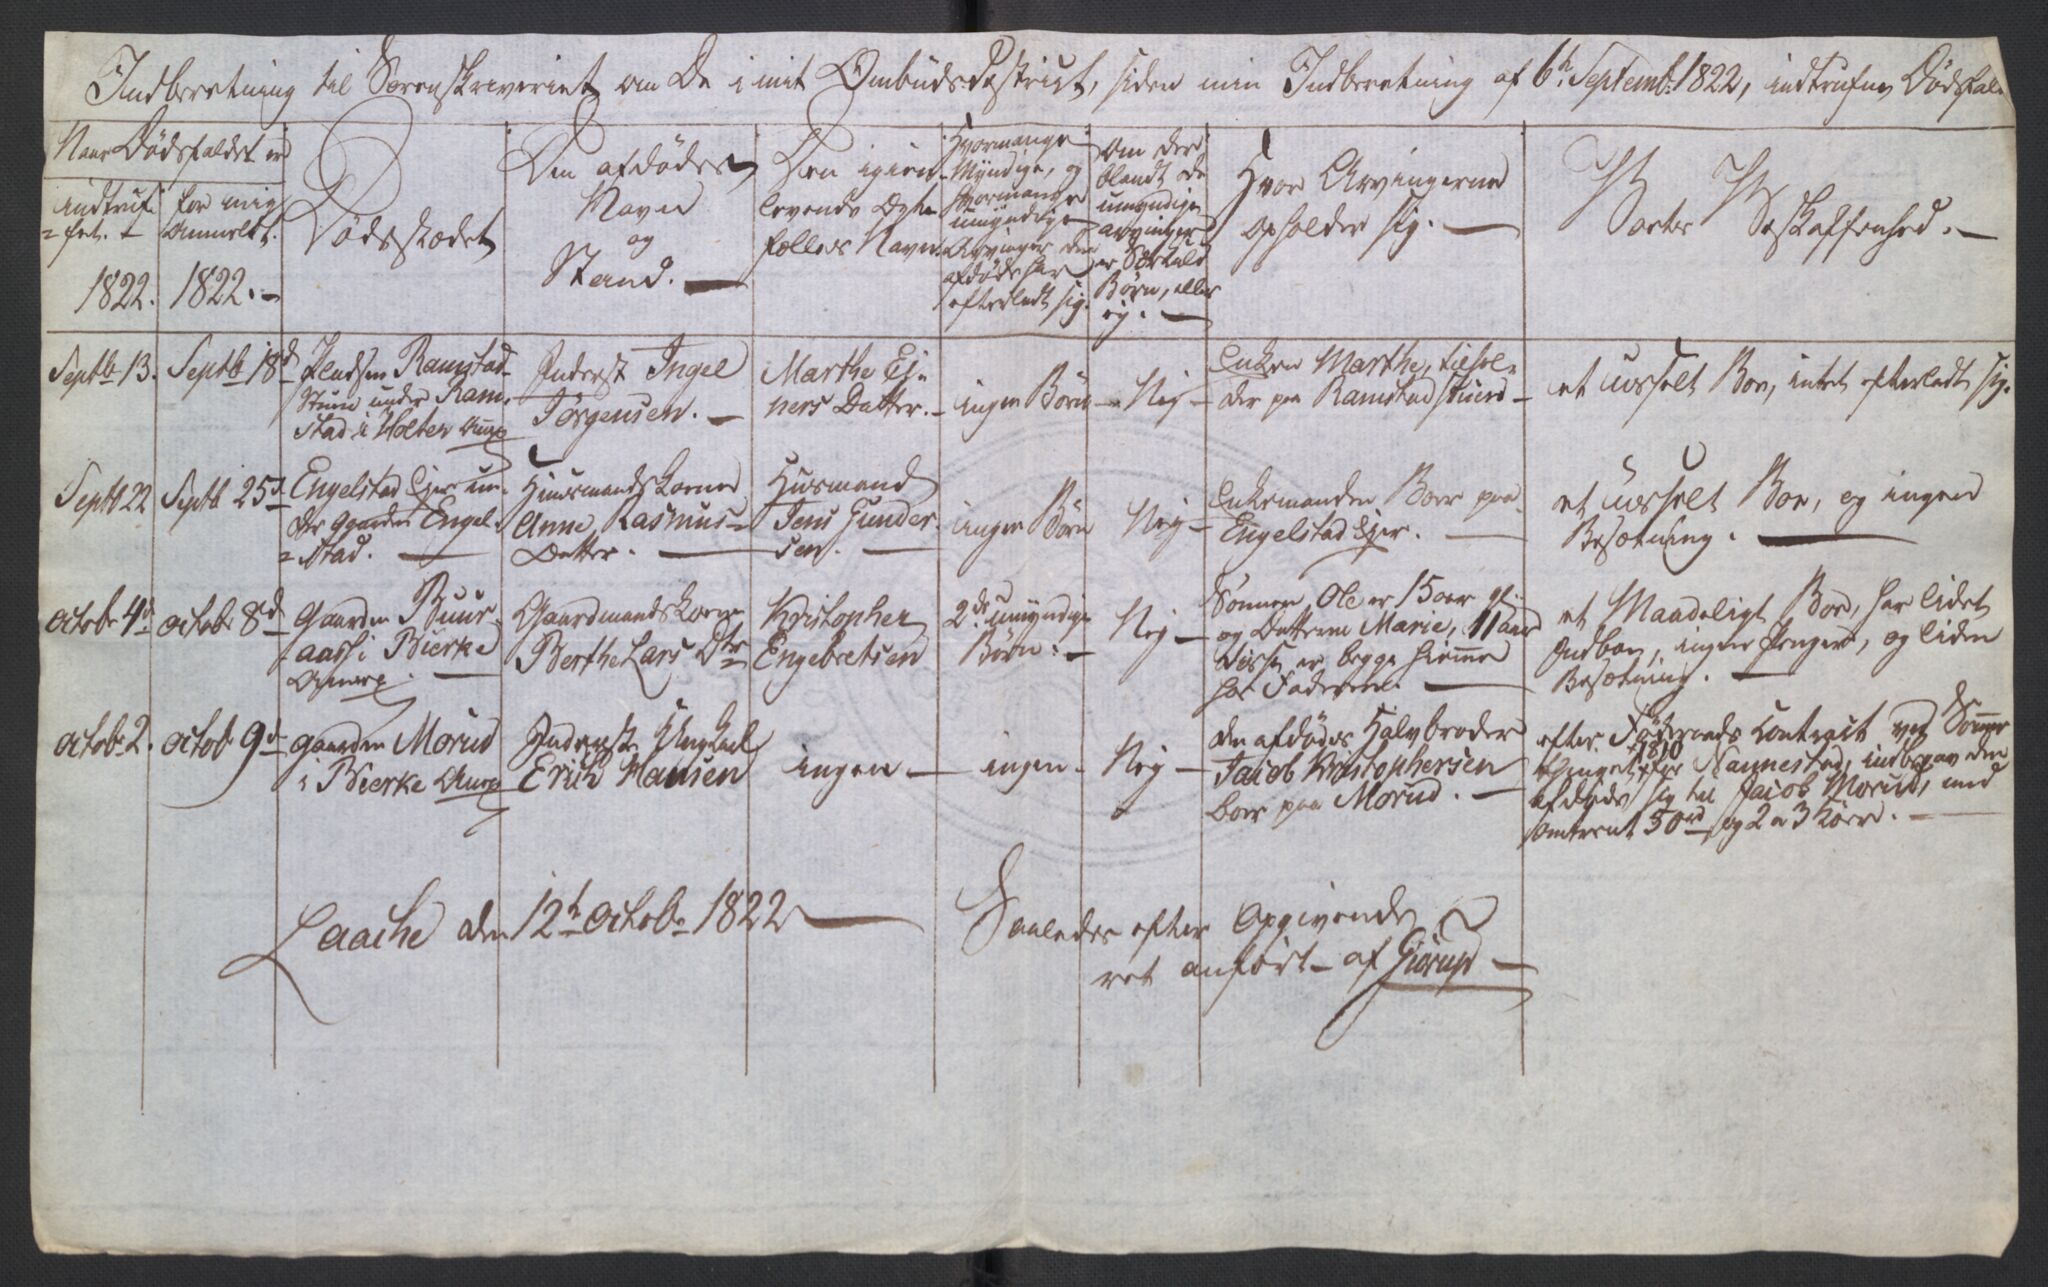 Indberetning til Sorenskriveriet om De i mit Ombuds-District, siden min Indberetning af 6te Septembr 1822, indtrufne Dødsfald
Naar Dødsfaldet er
indtruf-
=fet.
1822.
for mig
anmeldt.
1822.
Dødsstædet
Den afdødes
Navn
og
Stand.
Den igien-
levende Ægte-
fælles Navn
Hvormange
Myndige, og
hvormange
umyndige
Arvinger den
afdøde har
efterladt sig.
Om der
blandt de
umyndige
arvinger
er Særkuld
Børn, eller
ej.
Hvor Arvingerne
opholder sig.
Boets Beskaffenhed.
Septb 13.
Septb 18d
Pladsen Ramstad-
Stuen under Ram-
stad i Holter Anx
Inderst Ingel
Jørgensen.
Marthe Ej-
ners Datter.
ingen Børn
Nej
Enken Marthe, tilhol-
der paa Ramstadstuen
et usselt Boe, intet efterladt sig.
Septb 22
Septb 25d
Engelstad Ejer un-
der Gaarden Engel-
=stad.
Huusmandskone
Anne Rasmus-
Datter.
Huusmand
Jens Gunder-
sen.
ingen Børn
Nej
Enkemanden Boer paa
Engelstad Ejer.
et usselt Boe, og ingen
Besætning.
Octobr 4d
Octobr 8d
Gaarden Buur-
aas i Bierke
Annex.
Gaardmandskone
Berthe Lars Dtr
Kristopher
Engebretsen
2de umyndige
Børn.
Nej
Sønnen Ole er 15 aar gl.
og Datteren Marie, 11 aar
disse er begge hiemme
hos Faderen.
et Maadeligt Boe, har lidet
Indboe, ingen Penger, og liden
Besætning.
Octobr 2.
Octob 9d
gaarden Morud
i Bierke Anx
Inderst Ungkarl
Erich Hansen
ingen
ingen
Nej
den afdødes Halvbroder
Jacob Kristophersen
boer paa Morud.
efter Føderaads Contract ved Sommer
Thinget 1810 for Nannestad, indbegav den
afdøde sig til Jacob Morud, med
omtrent 50rd, og 2 a 3 Køer.
Laache den 12te Octobr 1822
Saaledes efter Opgivende
ret anført af Giørup